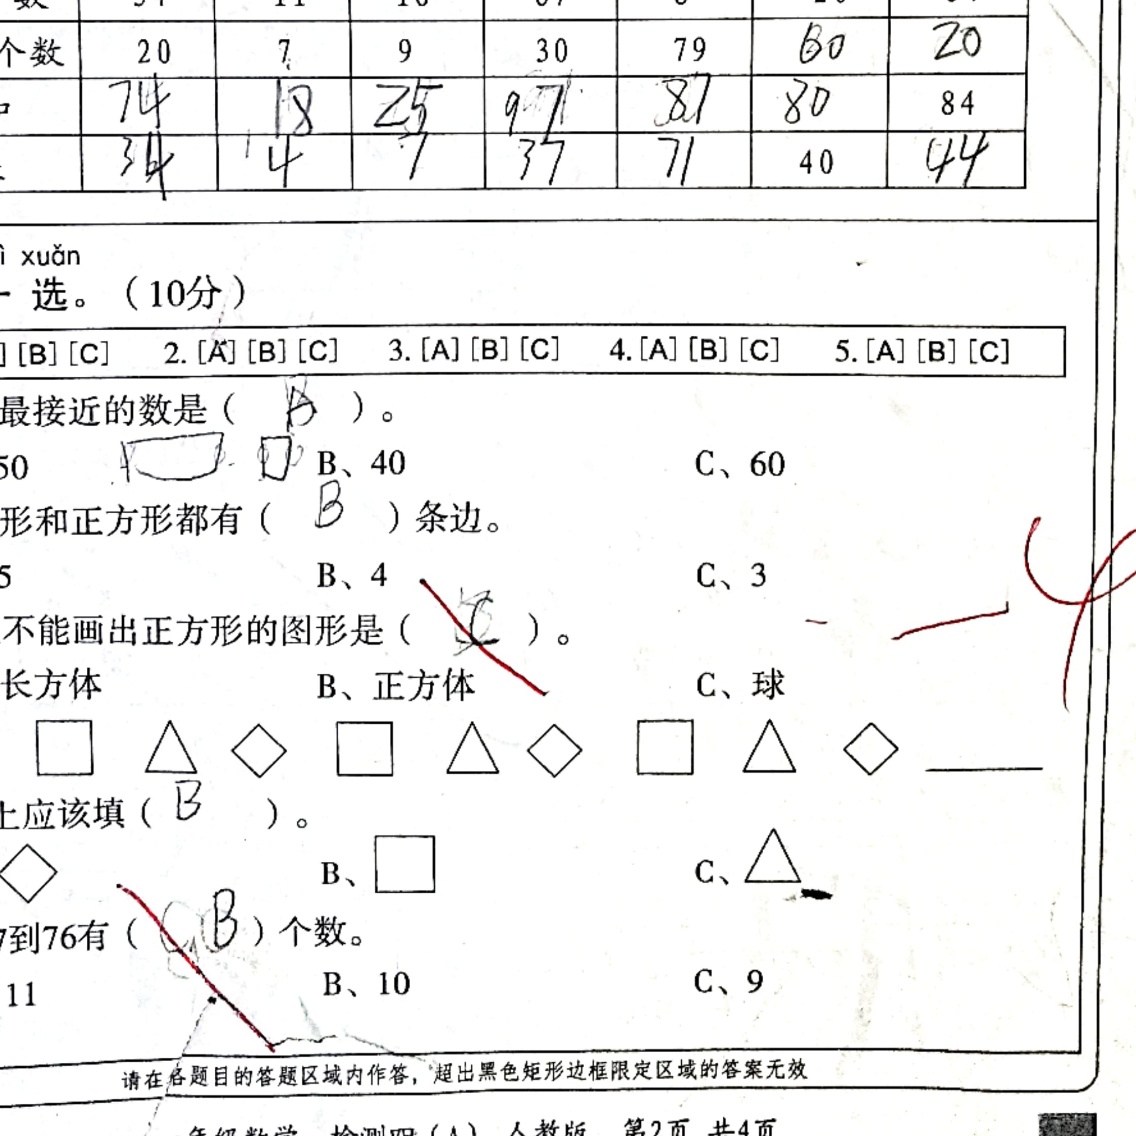 个数 20 7 9 30 79 60 20
74 18 25 97 81 80 84
34 4 7 37 71 40 44
xuǎn
选。（10分）
[B] [C] 2. [A] [B] [C] 3. [A] [B] [C] 4. [A] [B] [C] 5. [A] [B] [C]
最接近的数是（ B ）。
50 B、40 C、60
形和正方形都有（ B ）条边。
5 B、4 C、3
不能画出正方形的图形是（ C ）。
长方体 B、正方体 C、球
上应该填（ B ）。
B、 C、
7到76有（ B ）个数。
11 B、10 C、9
请在各题目的答题区域内作答，超出黑色矩形边框限定区域的答案无效
年级数学 检测四（A） 人教版 第2页 共4页